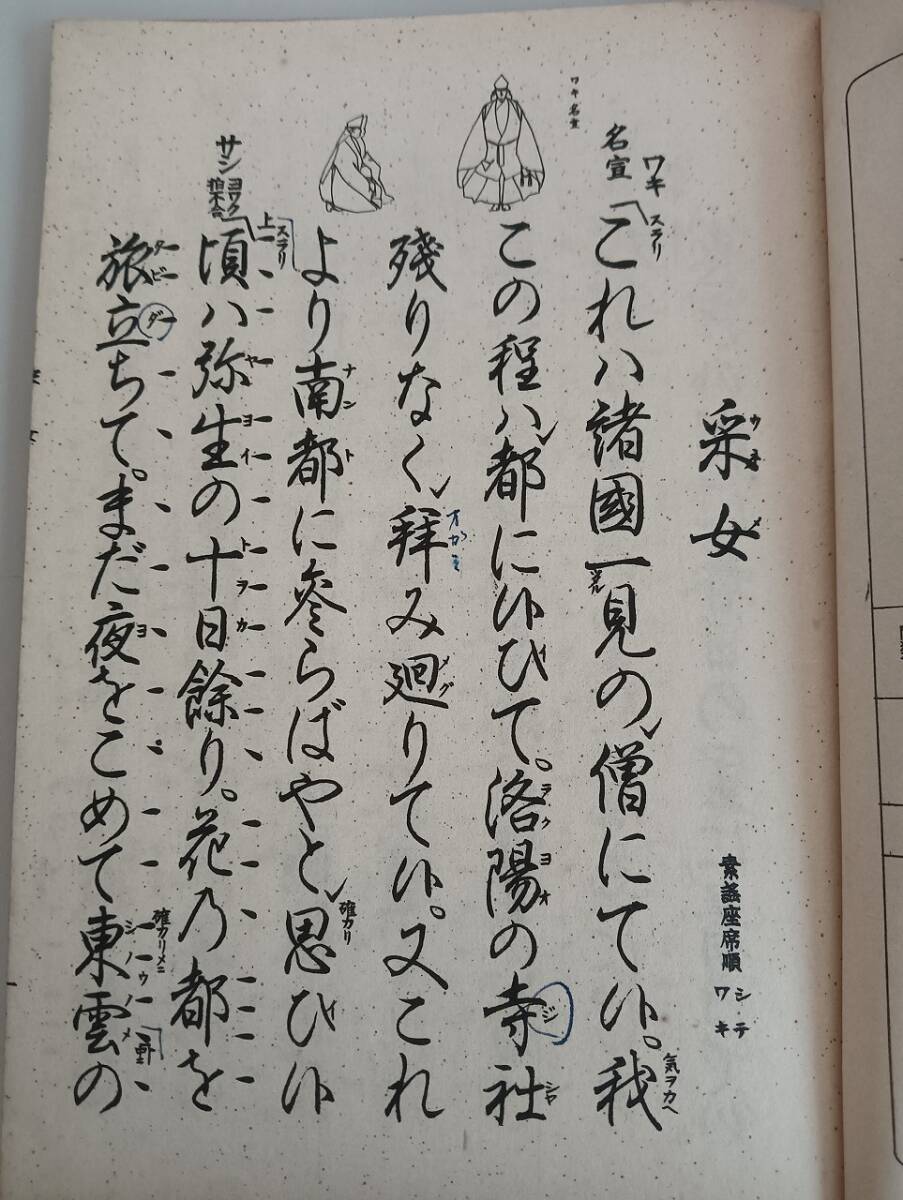 采女
素謡座席順 シテ ワキ
ワキ
名宣
ワキ名宣
「これハ諸國一見の僧にて候。我
この程ハ都に候ひて。洛陽の寺社
殘りなく拜み廻りて候。又これ
より南都に參らばやと思ひ候
サシ
ヨワク
拍不合
頃ハ弥生の十日餘り。花乃都を
旅立ちて。まだ夜をこめて東雲の